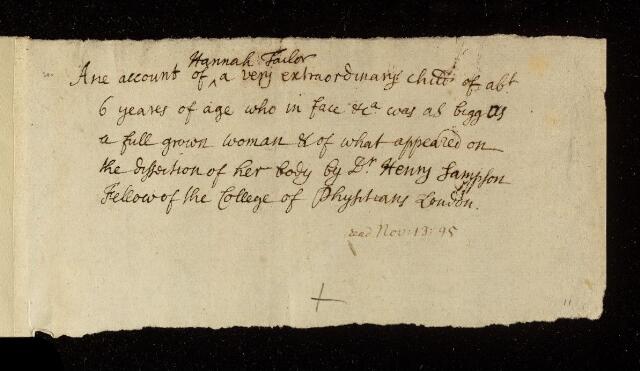 Hannah Tailor
Ane account of ^ a very extraordinary child of abt
6 yeares of age who in face &ca was as bigg as
a full grown woman & of what appeared on
the dissection of her body by Dr Henry Sampson
Fellow of the College of Physitians London.
read Nov: 13: 95
11